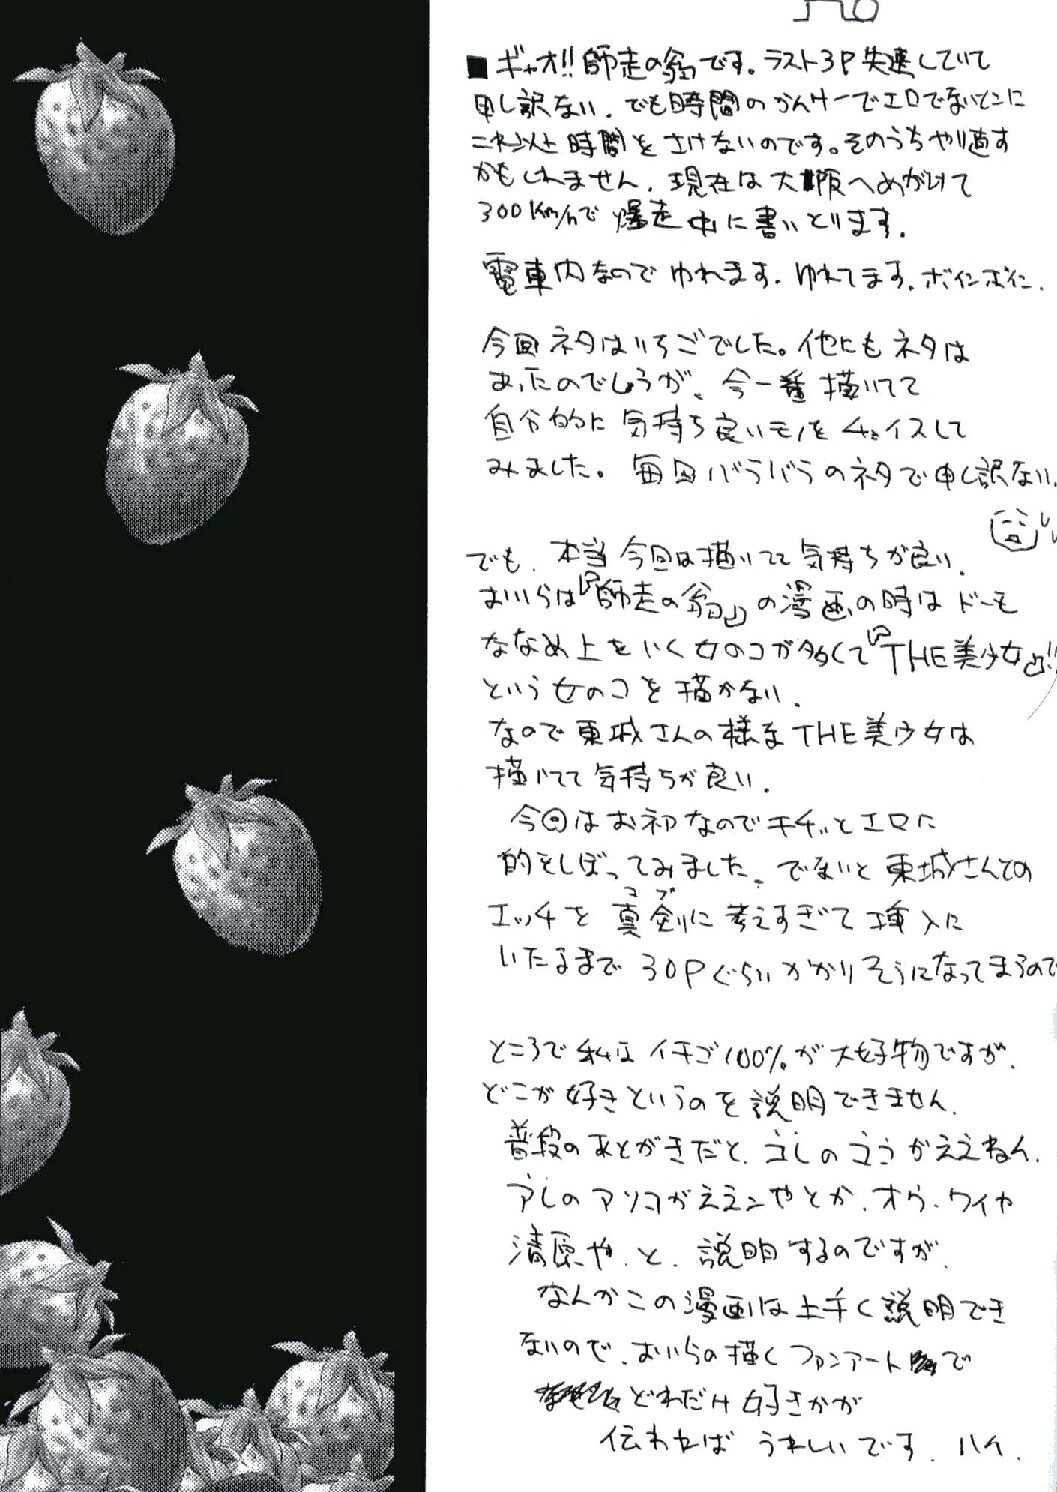 ■ギャオ!!師走の翁です。ラスト3P失速していて
申し訳ない。でも時間のかんけーでエロでないとこに
これ以上時間をさけないのです。そのうちやり直す
かもしれません。現在は大阪へめがけて
300Km/hで爆走中に書いとります。
電車内なのでゆれます。ゆれてます。ボインボイン。
今回ネタはいちごでした。他にもネタは
あったのでしょうが、今一番描いてて
自分的に気持ち良いモノをチョイスして
みました。毎回バラバラのネタで申し訳ない。
でも、本当今回は描いてて気持ちが良い。
おいらは『師走の翁』の漫画の時はドーモ
ななめ上をいく女のコが多くて『THE美少女』
という女のコを描かない。
なので東城さんの様なTHE美少女は
描いてて気持ちが良い。
今回はお初なのでキチッとエロに
的をしぼってみました。でないと東城さんでの
エッチを真剣に考えすぎて挿入に
マブ
いたるまで30Pぐらいかかりそうになってまうので
ところで私はイチゴ100%が大好物ですが、
どこが好きというのを説明できません。
普段のあとがきだと、コレのココがええねん。
アレのアソコがええンやとか、オウ、ワイや
清原や、と、説明するのですが、
なんかこの漫画は上手く説明でき
ないので、おいらの描くファンアートで
どれだけ好きかが
伝われば うれしいです。ハイ。